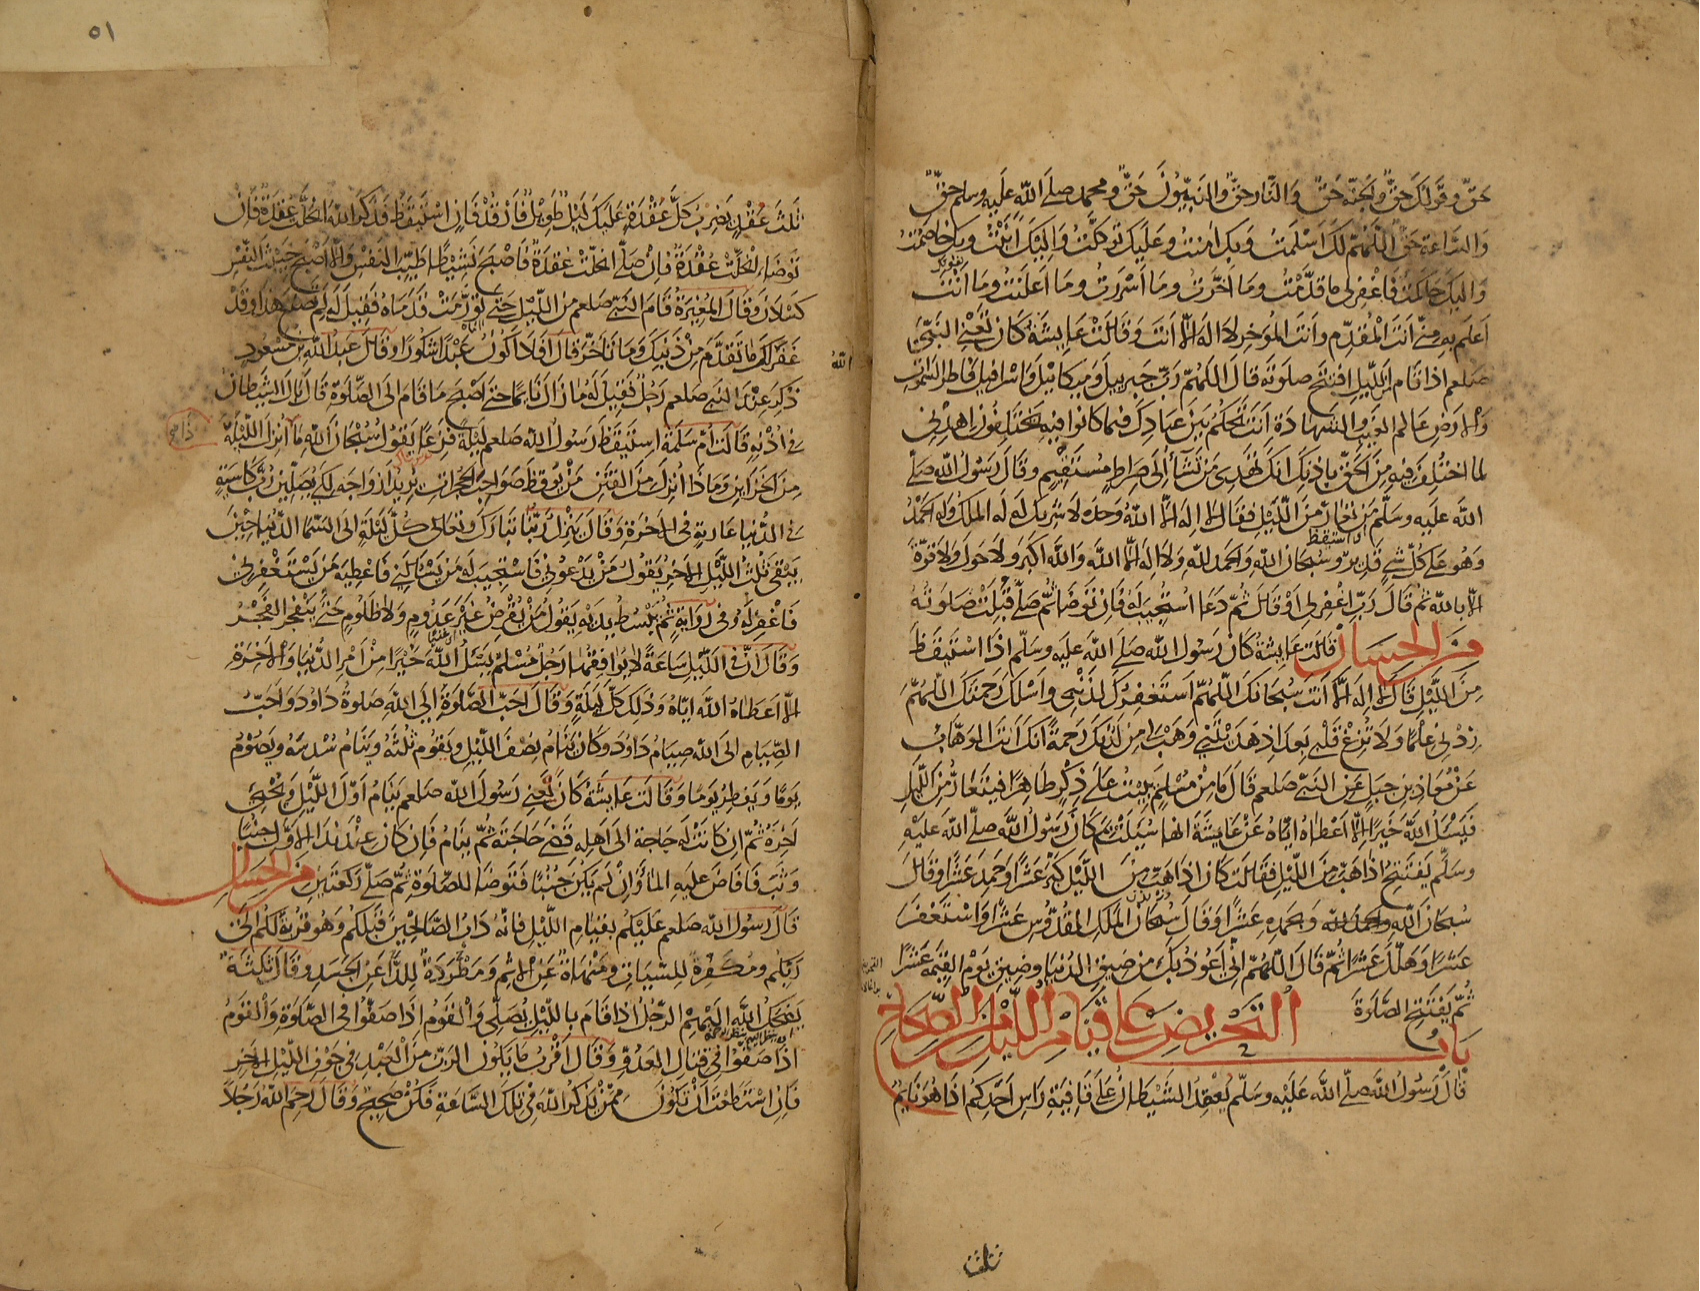 حق وقولك حق والجنة حق والنار حق والنبيون حق ومحمد صلى الله عليه وسلم حق
والساعة حق اللهم لك اسلمت وبك امنت وعليك توكلت واليك انبت وبك خاصمت
واليك حاكمت فاغفر لي ما قدمت وما اخرت وما اسررت وما اعلنت وما انت
اعلم به مني انت المقدم وانت المؤخر لا اله الا انت وقالت عايشة كان تعني النبي
صلعم اذا قام من الليل افتتح صلوته قال اللهم رب جبريل وميكائيل واسرافيل فاطر السموات
والارض عالم الغيب والشهادة انت تحكم بين عبادك فيما كانوا فيه يختلفون اهدني
لما اختلف فيه من الحق باذنك انك تهدي من تشآء الى صراط مستقيم وقال رسول الله صلى
الله عليه وسلم من تعار من الليل فقال لا اله الا الله وحده لا شريك له له الملك وله الحمد
اذا استيقظ
وهو على كل شئ قدير وسبحان الله والحمد لله ولا اله الا الله والله اكبر ولا حول ولا قوة
الا بالله ثم قال رب اغفر لي او قال ثم دعا استجيب له فان توضا ثم صلى قبلت صلوته
من الحسان قالت عايشة كان رسول الله صلى الله عليه وسلم اذا استيقظ
من الليل قال لا اله الا انت سبحانك اللهم استغفرك لذنبي واسلك رحمتك اللهم
زدني علما ولا تزغ قلبي بعد اذ هديتني وهب لي من لدنك رحمة انك انت الوهاب
عن معاذ بن جبل عن النبي صلعم قال ما من مسلم يبيت على ذكر طاهرا فيتعار من الليل
فيسل الله خيرا الا اعطاه اياه عن عايشة انها سيلت بم كان رسول الله صلى الله عليه
وسلم يفتتح اذا هب من الليل فقالت كان اذا هب من الليل كبر عشرا وحمد عشرا وقال
سبحان الله وبحمده عشرا وقال سبحان الملك القدوس عشرا واستغفر
عشرا وهلل عشرا ثم قال اللهم اني اعوذ بك من ضيق الدنيا وضيق يوم القيمة عشرا
ثم يفتتح الصلوة
باب التحريض على قيام الليل من الصحاح
قال رسول الله صلى الله عليه وسلم يعقد الشيطان على قافية راس احدكم اذا هو نايم
ثلث
٥١
ثلث عقد يضرب كل عقدة عليك ليل طويل فارقد فان استيقظ فذكر الله انحلت عقدة فان
توضا انحلت عقدة فان صلى انحلت عقدة فاصبح نشيطا طيب النفس والا اصبح خبيث النفس
كسلان وقال المغيرة قام النبي صلعم من الليل حتى تورمت قدماه فقيل له لم تصنع هذا وقد
غفر لك ما تقدم من ذنبك وما تاخر قال افلا اكون عبدا شكورا وقال عبد الله بن مسعود
الله
ذكر عند النبي صلعم رجل فقيل له ما زال نايما حتى اصبح ما قام الى الصلوة قال بال الشيطان
في اذنه قالت ام سلمة استيقظ رسول الله صلعم ليلة فزعا يقول سبحان الله ما انزل الليلة
من الخزاين وماذا انزل من الفتن من يوقظ صواحب الحجرات يريد ازواجه لكي يصلين رب كاسية
في الدنيا عارية في الاخرة وقال ينزل ربنا تبارك وتعالى كل ليلة الى السما الدنيا حين
يبقى ثلث الليل الاخر يقول من يدعوني فاستجيب له من يسالني فاعطيه من يستغفرني
فاغفر له وفي رواية ثم يبسط يديه يقول من يقرض غير عدوم ولا ظلوم حتى ينفجر الفجر
وقال ان في الليل ساعة لا يوافقها رجل مسلم يسل الله خيرا من امر الدنيا والاخرة
الا اعطاه الله اياه وذلك كل ليلة وقال احب الصلوة الى الله صلوة داود واحب
الصيام الى الله صيام داود وكان ينام نصف الليل ويقوم ثلثه وينام سدسه ويصوم
يوما ويفطر يوما وقالت عايشة كان تعني رسول الله صلعم ينام اول الليل ويحيي
اخره ثم ان كانت له حاجة الى اهله قضى حاجته ثم ينام فان كان عند ندا الاول جنبا
وثب فافاض عليه الماء وان لم يكن جنبا فتوضا للصلوة ثم صلى ركعتين من الحسان
قال رسول الله صلعم عليكم بقيام الليل فانه داب الصالحين قبلكم وهو قربة لكم الى
ربكم ومكفرة للسيات ومنهاة عن الاثم ومطردة للدا عن الجسد وقال ثلثة
يضحك الله اليهم الرجل اذا قام بالليل يصلي والقوم اذا صفوا في الصلوة والقوم
اذا صفوا في قتال العدو وقال اقرب ما يكون الرب من العبد في جوف الليل الاخر
فان استطعت ان تكون ممن يذكر الله في تلك الساعة فكن صحيح وقال رحم الله رجلا